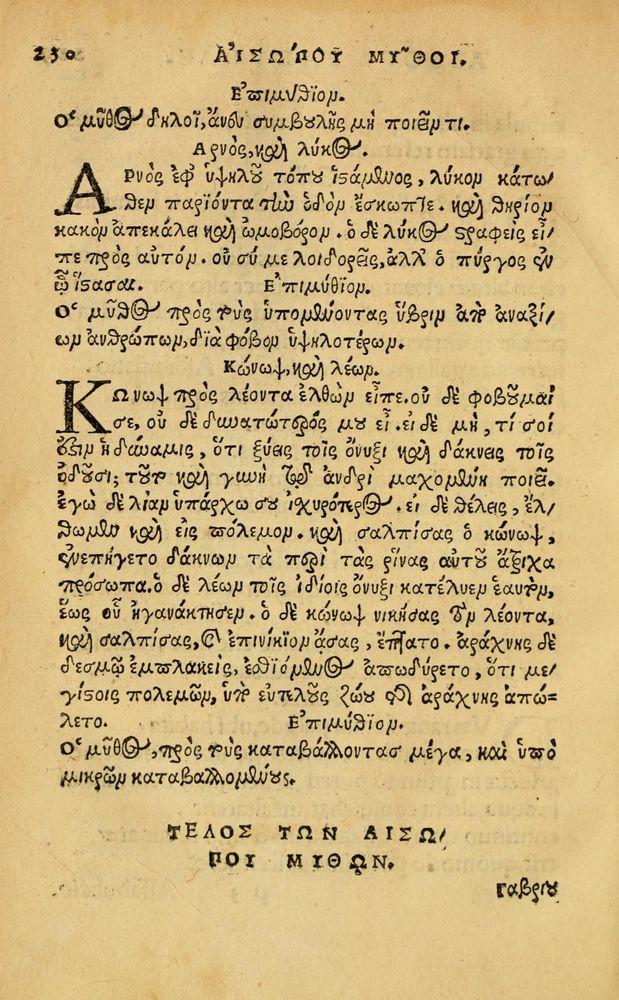 250 ΑΙΣΩΠΟΥ ΜΥΘΟΙ.
Ἐπιμύθιον.
Ὁ μῦθος δηλοῖ, ἄνευ συμβουλῆς μὴ ποιεῖν τι.
Ἀρνὸς, καὶ λύκος.
ΑΡνὸς ἐφ' ὑψηλοῦ τόπου ἱστάμενος, λύκον κάτω-
θεν παριόντα τὴν ὁδὸν ἔσκωπτε. καὶ θηρίον
κακὸν ἀπεκάλει καὶ ὠμοβόρον. ὁ δὲ λύκος στραφεὶς εἶ-
πε πρὸς αὐτόν. οὐ σύ με λοιδορεῖς, ἀλλ' ὁ πύργος ἐν
ᾧ ἵστασαι. Ἐπιμύθιον.
Ὁ μῦθος πρὸς τοὺς ὑπομένοντας ὕβριν ἀπὸ ἀναξί-
ων ἀνθρώπων, διὰ φόβον ὑψηλοτέρων.
Κώνωψ, καὶ λέων.
ΚΩνωψ πρὸς λέοντα ἐλθὼν εἶπε. οὐ δὲ φοβοῦμαί
σε, οὐ δὲ δυνατώτερός μου εἶ. εἰ δὲ μὴ, τί σοί
ἐστιν ἡ δύναμις, ὅτι ξύεις τοῖς ὄνυξι καὶ δάκνεις τοῖς
ὀδοῦσι; τοῦτο καὶ γυνὴ τῷ ἀνδρὶ μαχομένη ποιεῖ.
ἐγὼ δὲ λίαν ὑπάρχω σου ἰχυρότερος. εἰ δὲ θέλεις, ἔλ-
θωμεν καὶ εἰς πόλεμον. καὶ σαλπίσας ὁ κώνωψ,
ἐνεπήγετο δάκνων τὰ περὶ τὰς ῥίνας αὐτοῦ ἄτριχα
πρόσωπα. ὁ δὲ λέων τοῖς ἰδίοις ὄνυξι κατέλυεν ἑαυτὸν,
ἕως οὗ ἠγανάκτησεν. ὁ δὲ κώνωψ νικήσας τὸν λέοντα,
καὶ σαλπίσας, καὶ ἐπινίκιον ᾄσας, ἔπτατο. ἀράχνης δὲ
δεσμῷ ἐμπλακεὶς, ἐσθιόμενος ἀπωδύρετο, ὅτι με-
γίστοις πολεμῶν, ὑπὸ εὐτελοῦς ζώου τῆς ἀράχνης ἀπώ-
λετο. Ἐπιμύθιον.
Ὁ μῦθος, πρὸς τοὺς καταβάλλοντας μέγα, καὶ ὑπὸ
μικρῶν καταβαλλομένους.
ΤΕΛΟΣ ΤΩΝ ΑΙΣΩ-
ΠΟΥ ΜΥΘΩΝ.
Γαβρίου